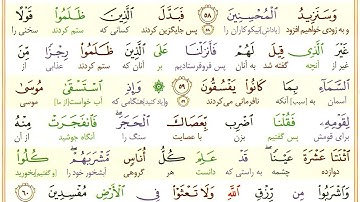 وَسَنَزِيدُ الْمُحْسِنِينَ ﴿٥٨﴾ فَبَدَّلَ الَّذِينَ ظَلَمُوا قَوْلًا
و به زودی خواهیم افزود (پاداش) نیکوکاران را پس جایگزین کردند کسانی که ستم کردند سخنی را
غَيْرَ الَّذِي قِيلَ لَهُمْ فَأَنْزَلْنَا عَلَى الَّذِينَ ظَلَمُوا رِجْزًا مِنَ
غیر از آنچه گفته شد به آنان پس فروفرستادیم بر آنان که ستم کردند عذابی از
السَّمَاءِ بِمَا كَانُوا يَفْسُقُونَ ﴿٥٩﴾ وَإِذِ اسْتَسْقَىٰ مُوسَىٰ
آسمان به [سبب] آنکه نافرمانی می‌کردند و [یاد کنید] هنگامی که آب خواست [از ما] موسی
لِقَوْمِهِ فَقُلْنَا اضْرِبْ بِعَصَاكَ الْحَجَرَ فَانْفَجَرَتْ مِنْهُ
برای قومش پس گفتیم بزن با عصایت سنگ را آنگاه جوشید از آن
اثْنَتَا عَشْرَةَ عَيْنًا قَدْ عَلِمَ كُلُّ أُنَاسٍ مَشْرَبَهُمْ كُلُوا
دوازده چشمه به راستی که دانست هر گروهی آبشخور خود را [و گفتیم] بخورید
وَاشْرَبُوا مِنْ رِزْقِ اللَّهِ وَلَا تَعْثَوْا فِي الْأَرْضِ مُفْسِدِينَ ﴿٦٠﴾